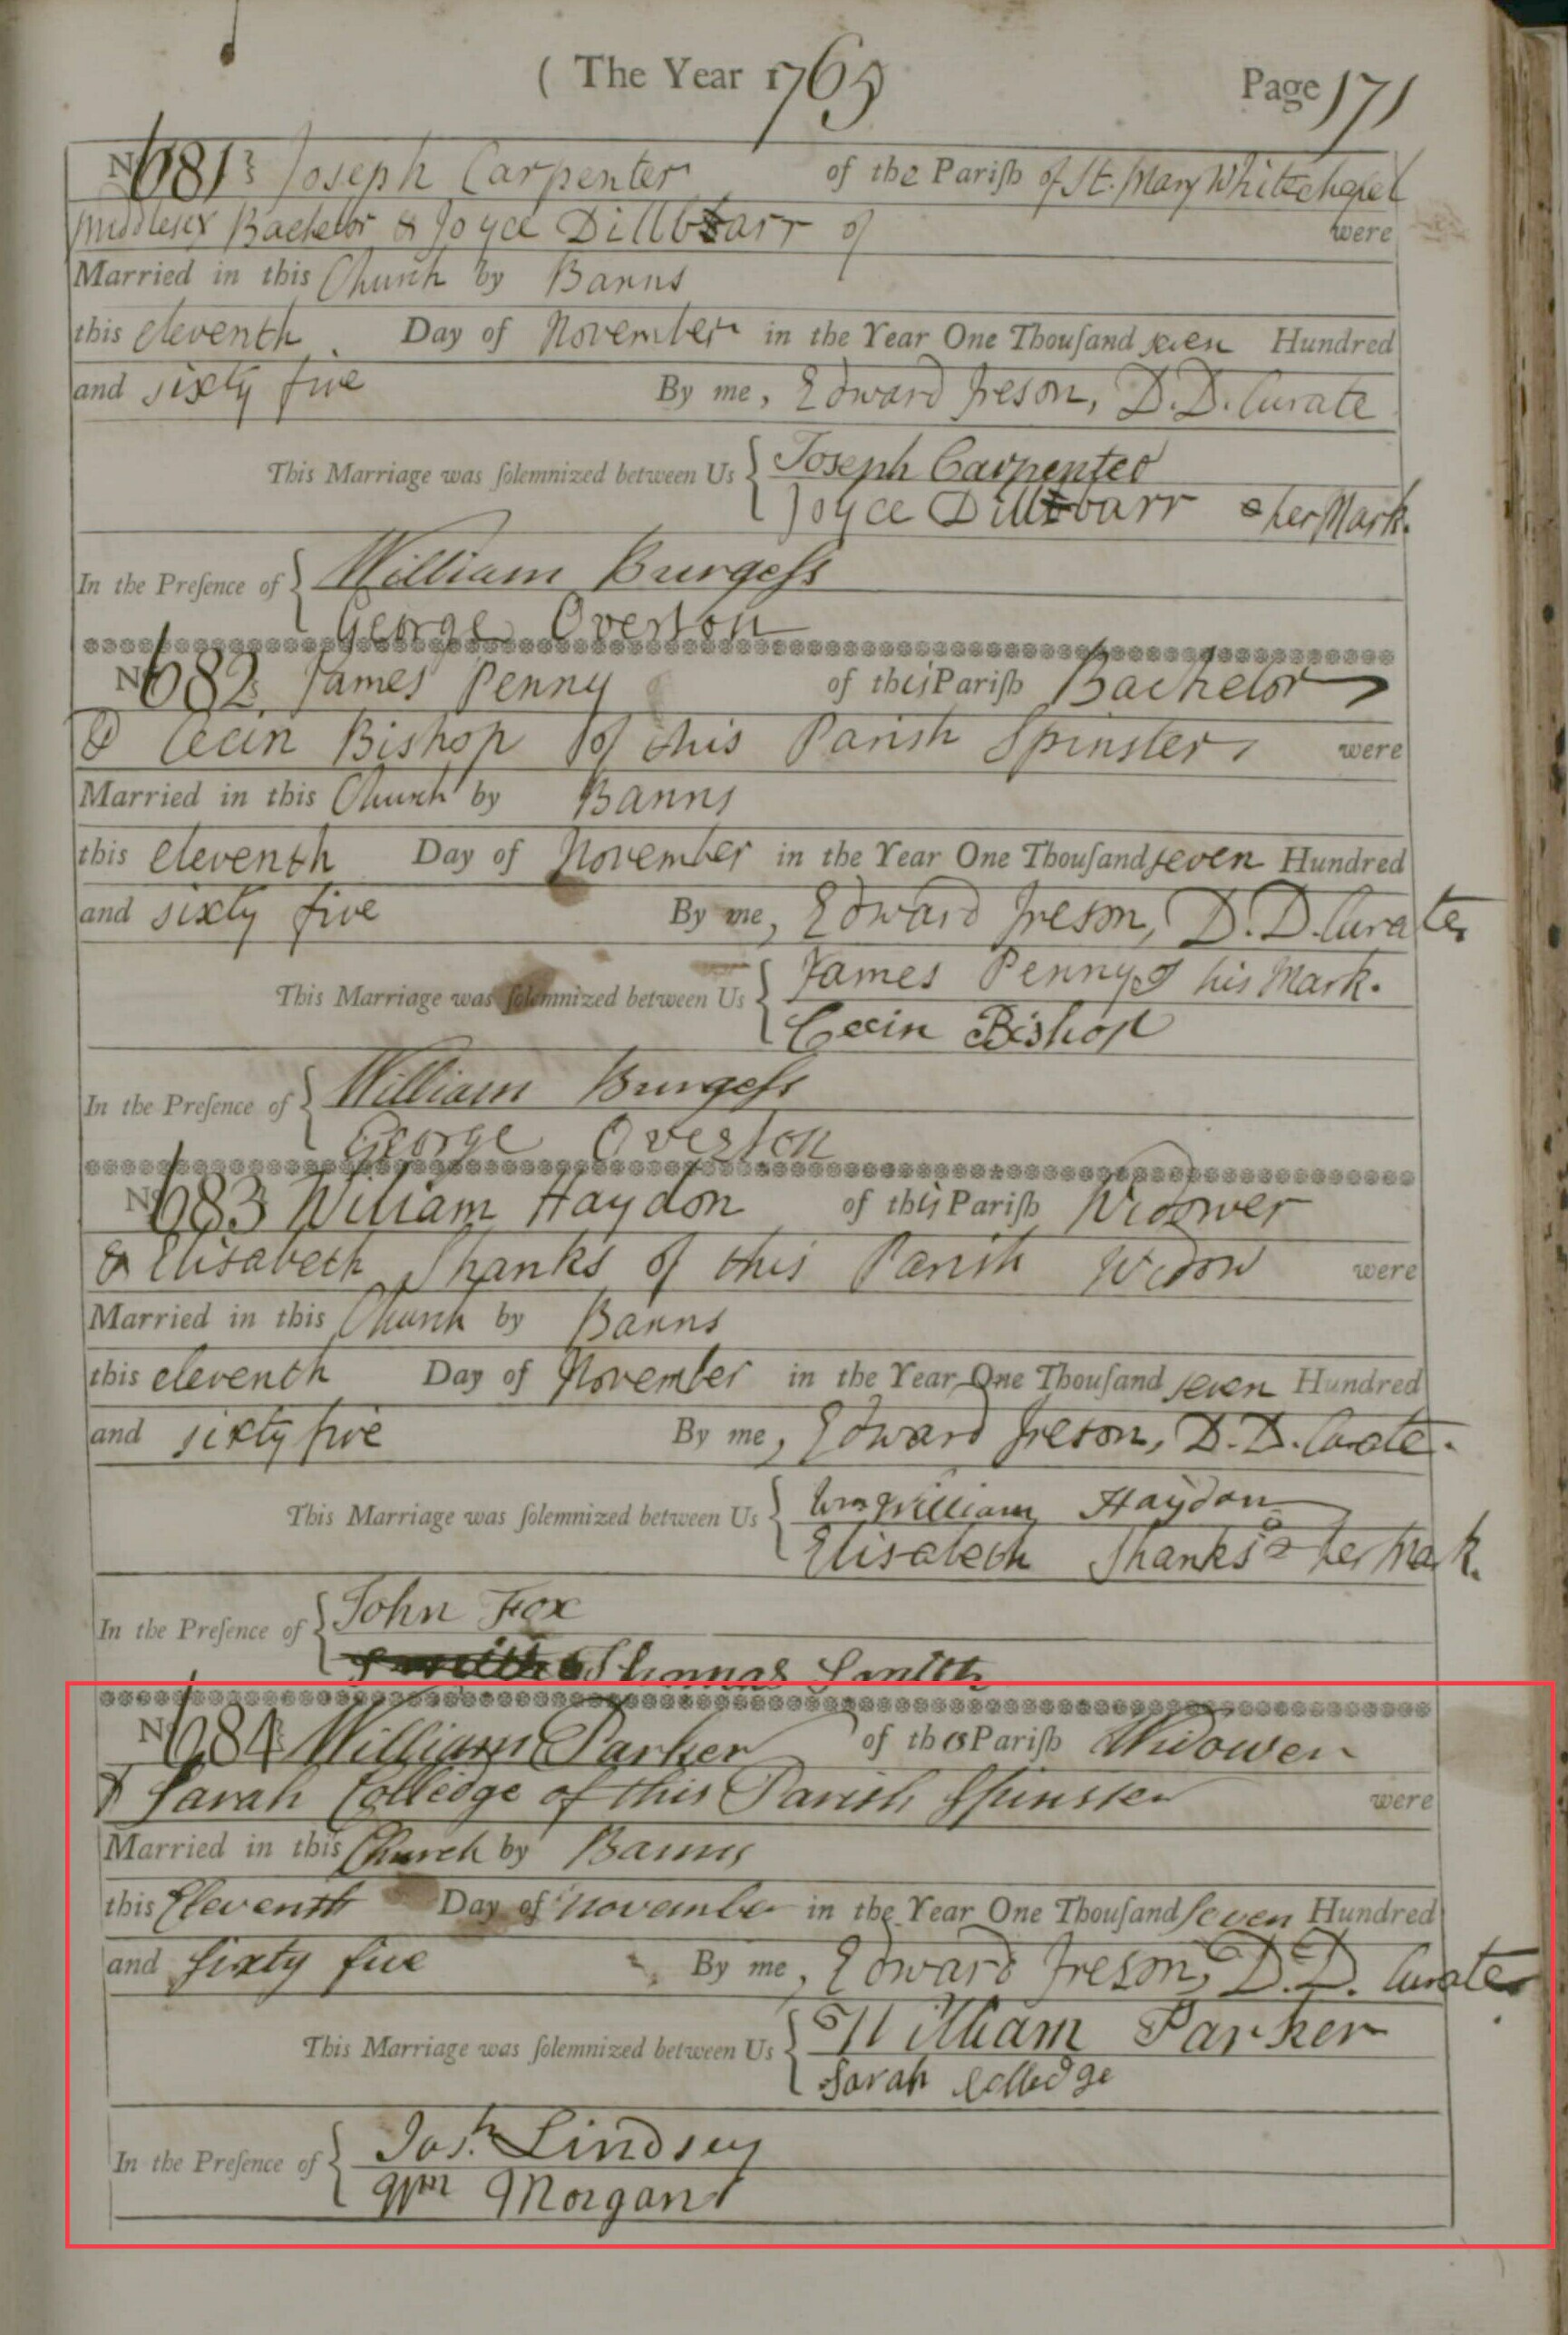 ( The Year 1765 Page 171
No 681 Joseph Carpenter of the Pariſh of St. Mary Whitechapel
Middlesex Bachelor & Joyce Dillbarr of were
Married in this Church by Banns
this eleventh Day of November in the Year One Thouſand seven Hundred
and sixty five By me, Edward Ireson, D.D. Curate
This Marriage was ſolemnized between Us { Joseph Carpenter
Joyce Dillbarr her Mark.
In the Preſence of { William Burgeſs
George Overton
No 682 James Penny of this Pariſh Bachelor
& Cecin Bishop of this Parish Spinster were
Married in this Church by Banns
this eleventh Day of November in the Year One Thouſand seven Hundred
and sixty five By me, Edward Ireson, D.D. Curate
This Marriage was ſolemnized between Us { James Penny his Mark.
Cecin Bishop
In the Preſence of { William Burgeſs
George Overton
No 683 William Haydon of this Pariſh Widower
& Elisabeth Shanks of this Parish Widow were
Married in this Church by Banns
this eleventh Day of November in the Year One Thouſand seven Hundred
and sixty five By me, Edward Ireson, D.D. Curate.
This Marriage was ſolemnized between Us { William Haydon
Elisabeth Shanks her Mark.
In the Preſence of { John Fox
Thomas Smith
No 684 William Parker of this Pariſh Widower
& Sarah Colledge of this Parish Spinster were
Married in this Church by Banns
this Eleventh Day of November in the Year One Thouſand Seven Hundred
and sixty five By me, Edward Ireson, D.D. Curate
This Marriage was ſolemnized between Us { William Parker
Sarah Colledge
In the Preſence of { Josh. Lindsey
Wm Morgan